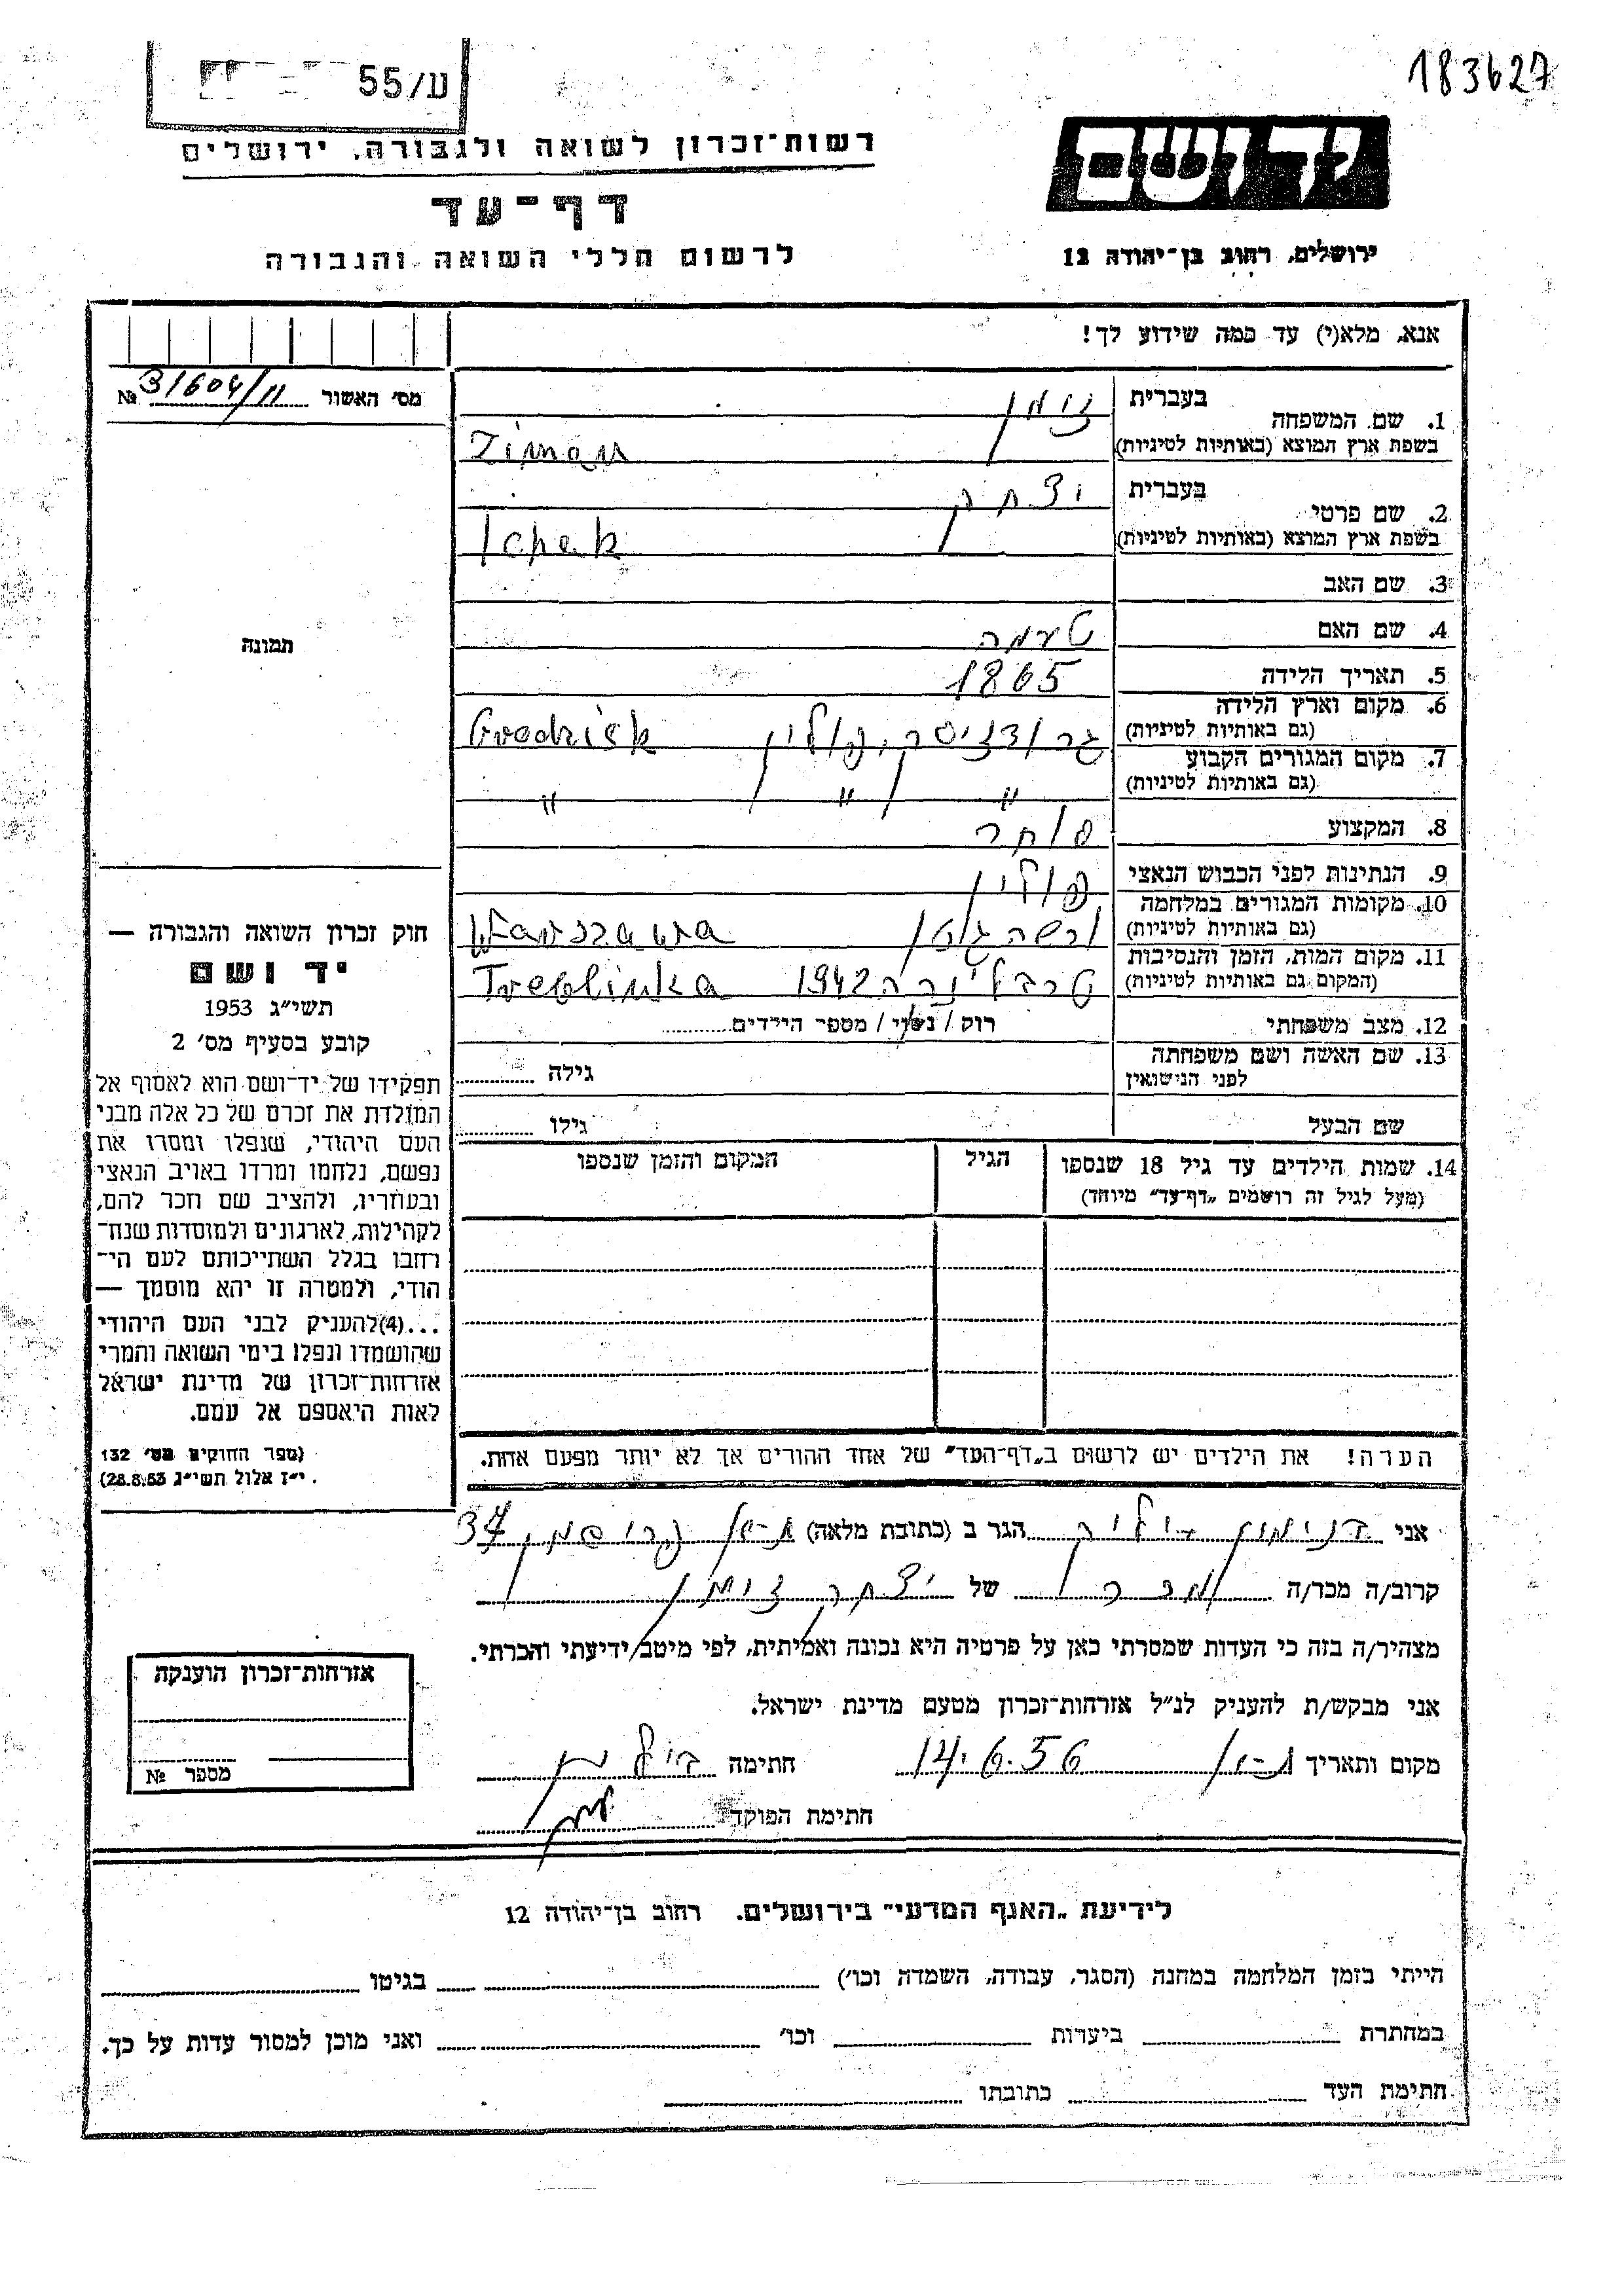 183627
ע/55
יד ושם
רשות־זכרון לשואה ולגבורה, ירושלים
דף־עד
ירושלים, רחוב בן־יהודה 12
לרשום חללי השואה והגבורה
אנא, מלא(י) עד כמה שידוע לך!
מס׳ האשור 31604/11 №
1. שם המשפחה בעברית זימן
בשפת ארץ המוצא (באותיות לטיניות) Ziman
2. שם פרטי בעברית יצחק
בשפת ארץ המוצא (באותיות לטיניות) Ichak
3. שם האב
4. שם האם
תמונה
5. תאריך הלידה 1865
6. מקום וארץ הלידה
(גם באותיות לטיניות) פולין Grodzisk
7. מקום המגורים הקבוע
(גם באותיות לטיניות) " " "
8. המקצוע סוחר
9. הנתינות לפני הכבוש הנאצי פולין
10. מקומות המגורים במלחמה
(גם באותיות לטיניות) ורשה גיטו Warszawa
11. מקום המות, הזמן והנסיבות
(המקום גם באותיות לטיניות) טרבלינקה 1942 Treblinka
12. מצב משפחתי רוק / נשוי / מספר הילדים
13. שם האשה ושם משפחתה
לפני הנישואין גילה
שם הבעל גילו
14. שמות הילדים עד גיל 18 שנספו הגיל המקום והזמן שנספו
(מעל לגיל זה רושמים „דף־עד״ מיוחד)
הערה! את הילדים יש לרשום ב„דף־העד״ של אחד ההורים אך לא יותר מפעם אחת.
חוק זכרון השואה והגבורה —
יד ושם
תשי״ג 1953
קובע בסעיף מס׳ 2
תפקידו של יד־ושם הוא לאסוף אל
המולדת את זכרם של כל אלה מבני
העם היהודי, שנפלו ומסרו את
נפשם, נלחמו ומרדו באויב הנאצי
ובעוזריו, ולהציב שם וזכר להם,
לקהילות, לארגונים ולמוסדות שנח־
רבו בגלל השתייכותם לעם הי־
הודי, ולמטרה זו יהא מוסמך —
...(4)להעניק לבני העם היהודי
שהושמדו ונפלו בימי השואה והמרי
אזרחות־זכרון של מדינת ישראל
לאות היאספם אל עמם.
(ספר החוקים מס׳ 132
י״ז אלול תשי״ג 28.8.53)
אני הגר ב (כתובת מלאה) 37
קרוב/ה מכר/ה מכר של יצחק זימן
מצהיר/ה בזה כי העדות שמסרתי כאן על פרטיה היא נכונה ואמיתית, לפי מיטב ידיעתי והכרתי.
אני מבקש/ת להעניק לנ״ל אזרחות־זכרון מטעם מדינת ישראל.
מקום ותאריך 14.6.56 חתימה
חתימת הפוקד
אזרחות־זכרון הוענקה
מספר №
לידיעת „האגף המדעי״ בירושלים, רחוב בן־יהודה 12
הייתי בזמן המלחמה במחנה (הסגר, עבודה, השמדה וכו׳) בגיטו
במחתרת ביערות וכו׳ ואני מוכן למסור עדות על כך.
חתימת העד כתובתו